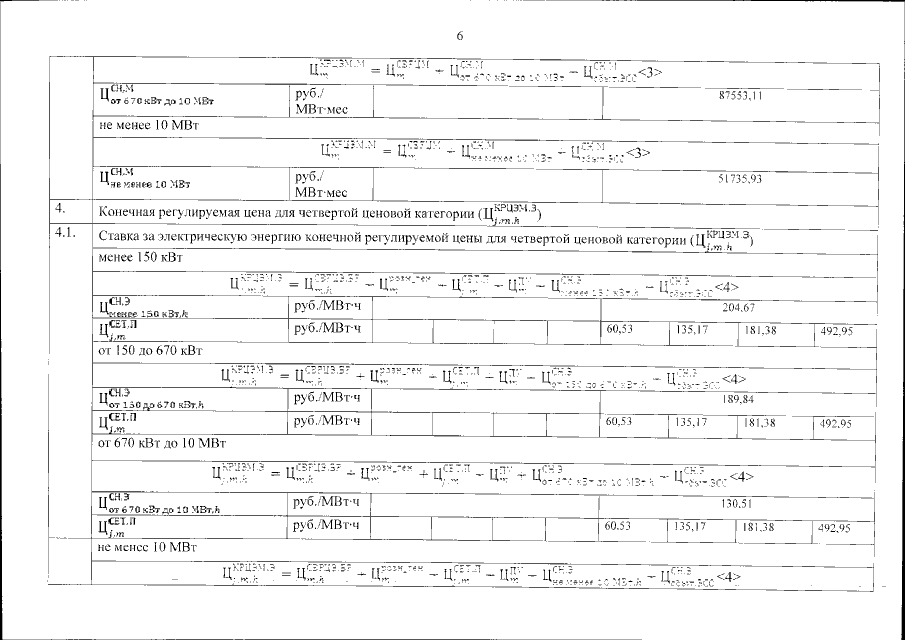 6
Ц КРЦЭМ.М m = Ц СВРЦМ m + Ц СН.М от 670 кВт до 10 МВт + Ц СН.М сбыт.ЭСО <3>
Ц СН.М от 670 кВт до 10 МВт руб./ МВт·мес 87553,11
не менее 10 МВт
Ц КРЦЭМ.М m = Ц СВРЦМ m + Ц СН.М не менее 10 МВт + Ц СН.М сбыт.ЭСО <3>
Ц СН.М не менее 10 МВт руб./ МВт·мес 51735,93
4. Конечная регулируемая цена для четвертой ценовой категории (Ц КРЦЭМ.Э j,m,h)
4.1. Ставка за электрическую энергию конечной регулируемой цены для четвертой ценовой категории (Ц КРЦЭМ.Э j,m,h)
менее 150 кВт
Ц КРЦЭМ.Э j,m,h = Ц СВРЦЭ.БР m,h + Ц розн_ген m + Ц СЕТ.П j,m + Ц ПУ m + Ц СН.Э менее 150 кВт,h + Ц СН.Э сбыт.ЭСО <4>
Ц СН.Э менее 150 кВт,h руб./МВт·ч 204,67
Ц СЕТ.П j,m руб./МВт·ч 60,53 135,17 181,38 492,95
от 150 до 670 кВт
Ц КРЦЭМ.Э j,m,h = Ц СВРЦЭ.БР m,h + Ц розн_ген m + Ц СЕТ.П j,m + Ц ПУ m + Ц СН.Э от 150 до 670 кВт,h + Ц СН.Э сбыт.ЭСО <4>
Ц СН.Э от 150 до 670 кВт,h руб./МВт·ч 189,84
Ц СЕТ.П j,m руб./МВт·ч 60,53 135,17 181,38 492,95
от 670 кВт до 10 МВт
Ц КРЦЭМ.Э j,m,h = Ц СВРЦЭ.БР m,h + Ц розн_ген m + Ц СЕТ.П j,m + Ц ПУ m + Ц СН.Э от 670 кВт до 10 МВт,h + Ц СН.Э сбыт.ЭСО <4>
Ц СН.Э от 670 кВт до 10 МВт,h руб./МВт·ч 130,51
Ц СЕТ.П j,m руб./МВт·ч 60,53 135,17 181,38 492,95
не менее 10 МВт
Ц КРЦЭМ.Э j,m,h = Ц СВРЦЭ.БР m,h + Ц розн_ген m + Ц СЕТ.П j,m + Ц ПУ m + Ц СН.Э не менее 10 МВт,h + Ц СН.Э сбыт.ЭСО <4>